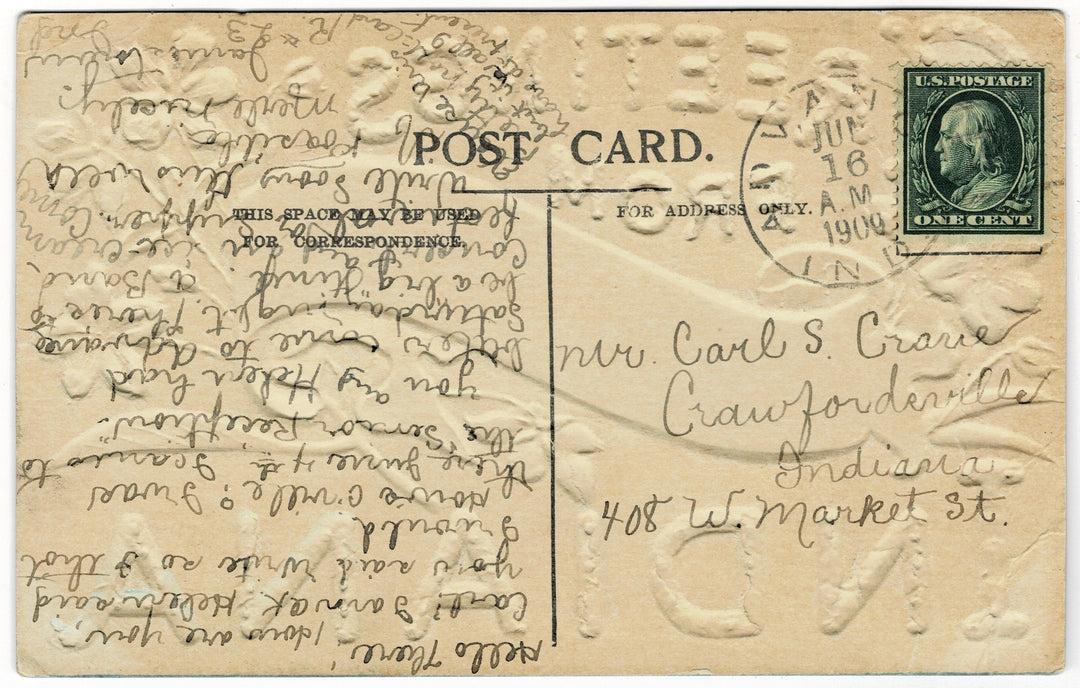 POST CARD.
THIS SPACE MAY BE USED
FOR CORRESPONDENCE.
FOR ADDRESS ONLY.
U.S. POSTAGE
ONE CENT
JUN
16
A.M.
1909
IND
Mr. Carl S. Crane
Crawfordsville
Indiana
408 W. Market St.
Hello There,
How are you,
Carl? Helen said
you said write so I thot
I would
How's C'ville? I was
there June 4th I came to
the "Senior Reception".
you and Helen had
better come to Advance
Saturday night. There is to
be a big "time" a Band
Concert and an ice cream
supper. Come
Write soon this week
Possible.
Merle Nicely.
Jamestown
Ind
R # 23